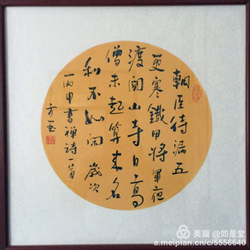 朝臣待漏五
更寒鐵甲將軍夜
渡関山寺日高
僧未起算來名
利不如闲 歲次
丙申書禪詩一首
美篇 @如是堂
a.meipian.cn/c/5556640